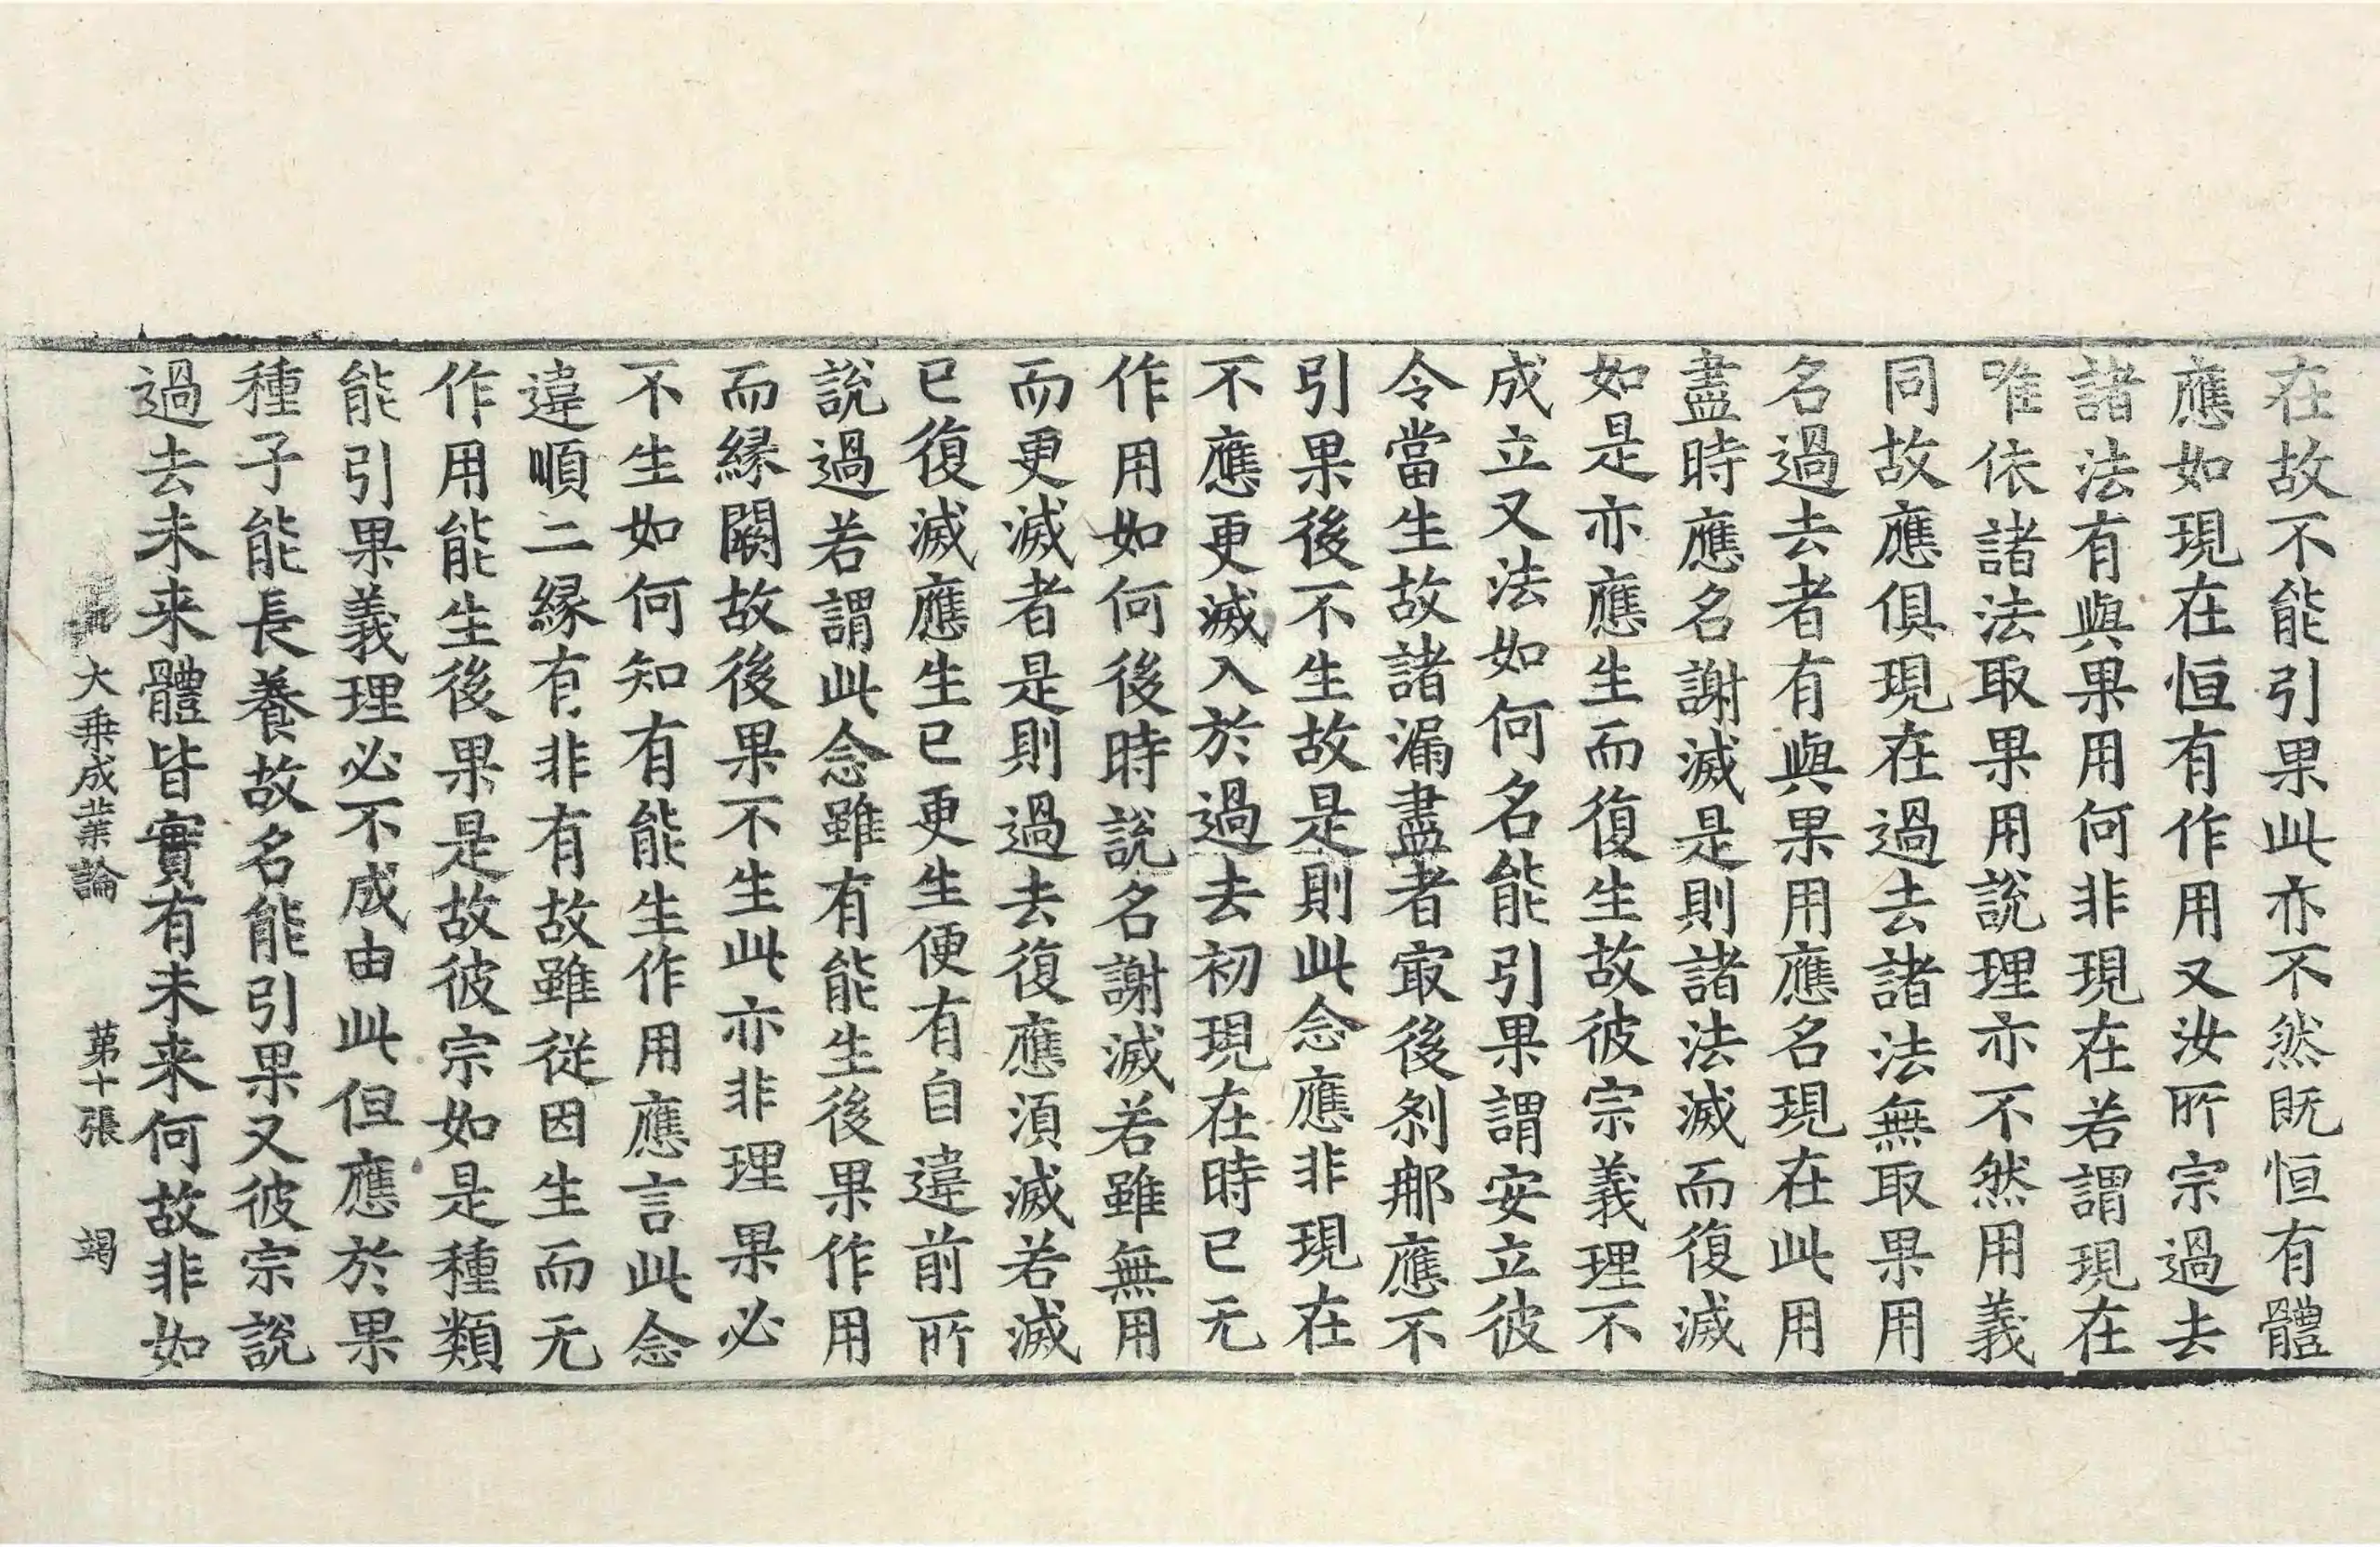 在故不能引果此亦不然既恒有體
應如現在恒有作用又汝所宗過去
諸法有與果用何非現在若謂現在
唯依諸法取果用說理亦不然用義
同故應俱現在過去諸法無取果用
名過去者有與果用應名現在此用
盡時應名謝滅是則諸法滅而復滅
如是亦應生而復生故彼宗義理不
成立又法如何名能引果謂安立彼
令當生故諸漏盡者㝡後剎那應不
引果後不生故是則此念應非現在
不應更滅入於過去初現在時已无
作用如何後時說名謝滅若雖無用
而更滅者是則過去復應湏滅若滅
已復滅應生已更生便有自違前所
說過若謂此念雖有能生後果作用
而緣闕故後果不生此亦非理果必
不生如何知有能生作用應言此念
違順二緣有非有故雖從因生而无
作用能生後果是故彼宗如是種類
能引果義理必不成由此但應於果
種子能長養故名能引果又彼宗說
過去未来體皆實有未来何故非如
大乗成業論 第十張 竭